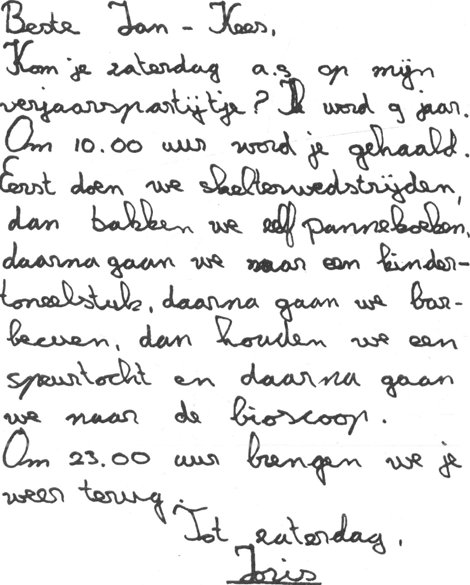 Beste Jan-Kees,
Kom je zaterdag a.s op mijn
verjaarspartijtje? Ik word 9 jaar.
Om 10.00 uur word je gehaald.
Eerst doen we skelterwedstrijden,
dan bakken we zelf pannekoeken,
daarna gaan we naar een kinder-
toneelstuk, daarna gaan we bar-
becuen, dan houden we een
speurtocht en daarna gaan
we naar de bioscoop.
Om 23.00 uur brengen we je
weer terug.
Tot zaterdag,
Joris